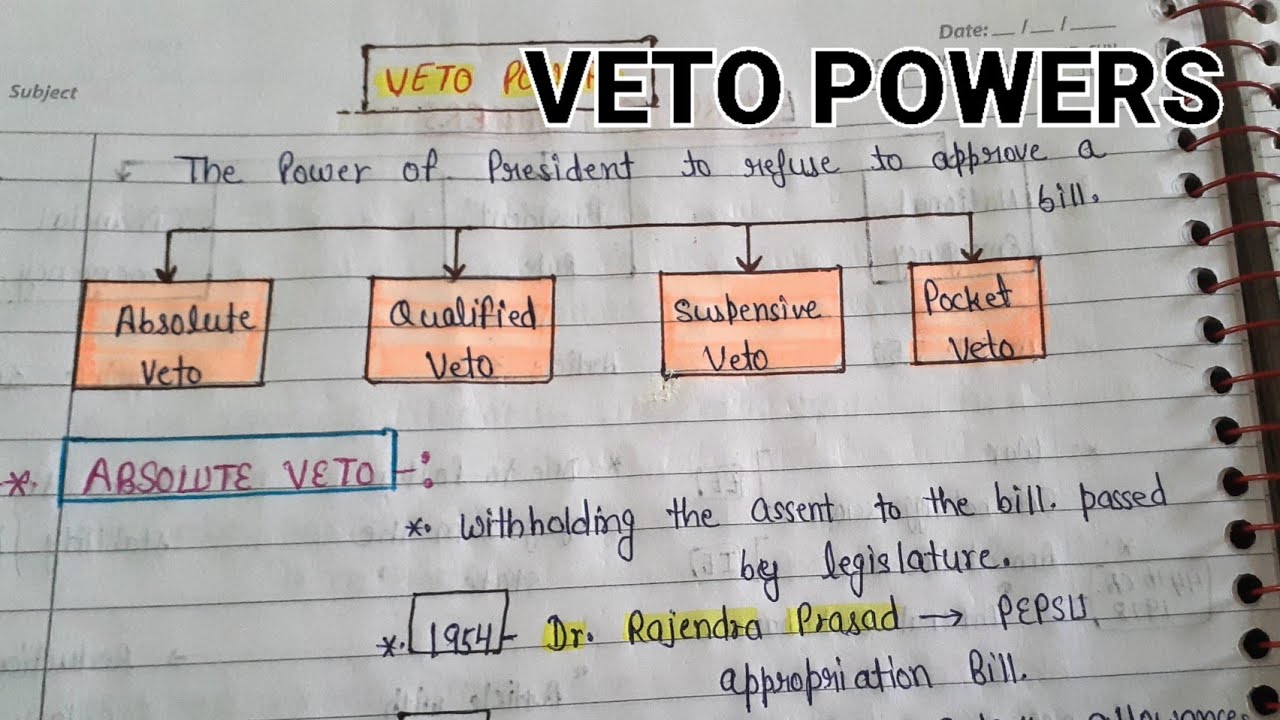 Date: __/__/__
Subject
VETO
VETO POWERS
The Power of President to refuse to approve a
bill.
Absolute
Veto
Qualified
Veto
Suspensive
Veto
Pocket
Veto
*. ABSOLUTE VETO -:
*. withholding the assent to the bill. passed
by legislature.
*. 1954 - Dr. Rajendra Prasad → PEPSU
appropriation Bill.
allowance